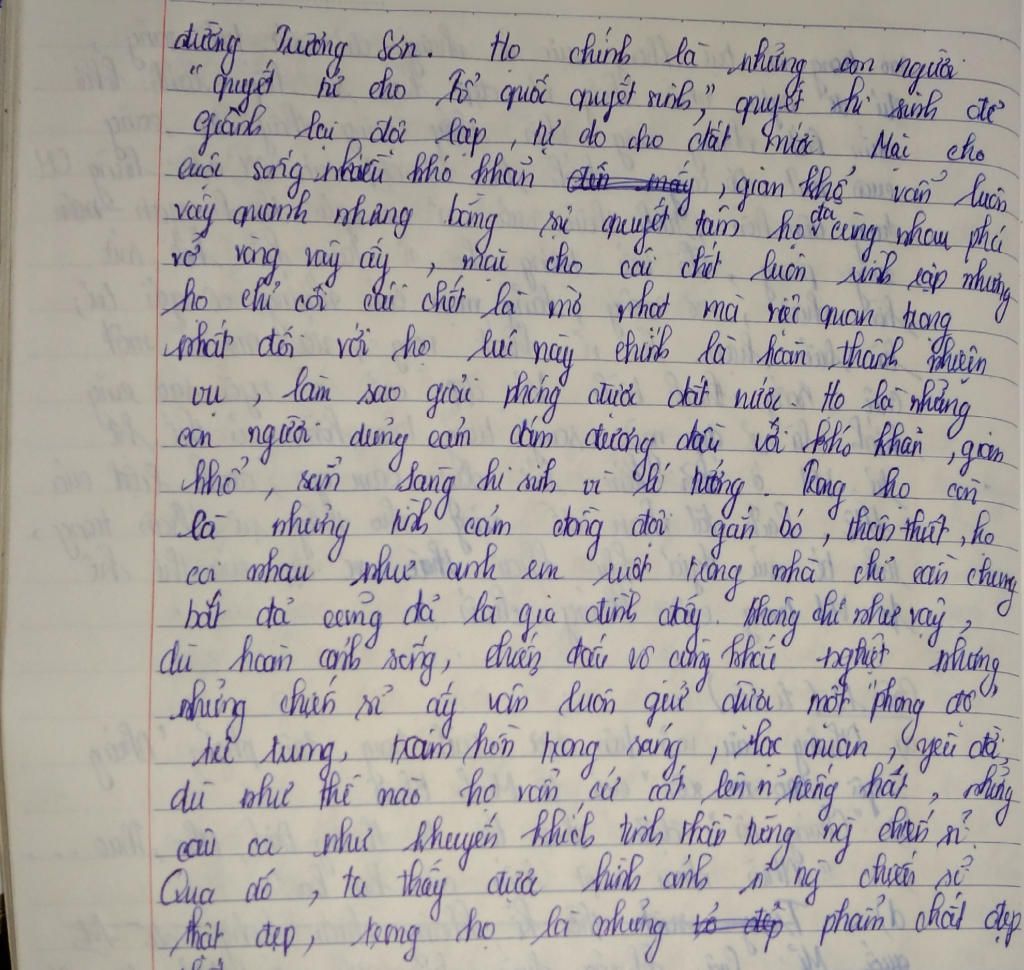 đường Trường Sơn. Họ chính là những con người
"quyết tử cho tổ quốc quyết sinh," quyết hi sinh để
giành lại độc lập, tự do cho đất nước. Mặc cho
cuộc sống nhiều khó khăn đến mấy, gian khổ vẫn luôn
vây quanh nhưng bằng sự quyết tâm họ đã cùng nhau phá
vỡ vòng vây ấy, mặc cho cái chết luôn rình rập nhưng
họ chỉ coi cái chết là mờ nhạt mà việc quan trọng
nhất đối với họ lúc này chính là hoàn thành nhiệm
vụ, làm sao giải phóng được đất nước. Họ là những
con người dũng cảm dám đương đầu với khó khăn, gian
khổ, sẵn sàng hi sinh vì lí tưởng. Trong họ còn
là những tình cảm đồng đội gắn bó, thân thiết, họ
coi nhau như anh em ruột trong nhà chỉ cần chung
bát đã cũng đã là gia đình đấy. Không chỉ như vậy,
dù hoàn cảnh sống, chiến đấu vô cùng khắc nghiệt nhưng
những chiến sĩ ấy vẫn luôn giữ được một "phong độ"
trẻ trung, tâm hồn trong sáng, lạc quan, yêu đời,
dù như thế nào họ vẫn cứ cất lên n~ tiếng hát, những
câu ca như khuyến khích tinh thần từng ng chiến sĩ.
Qua đó, ta thấy được hình ảnh n~ ng chiến sĩ
thật đẹp, trong họ là những phẩm chất đẹp